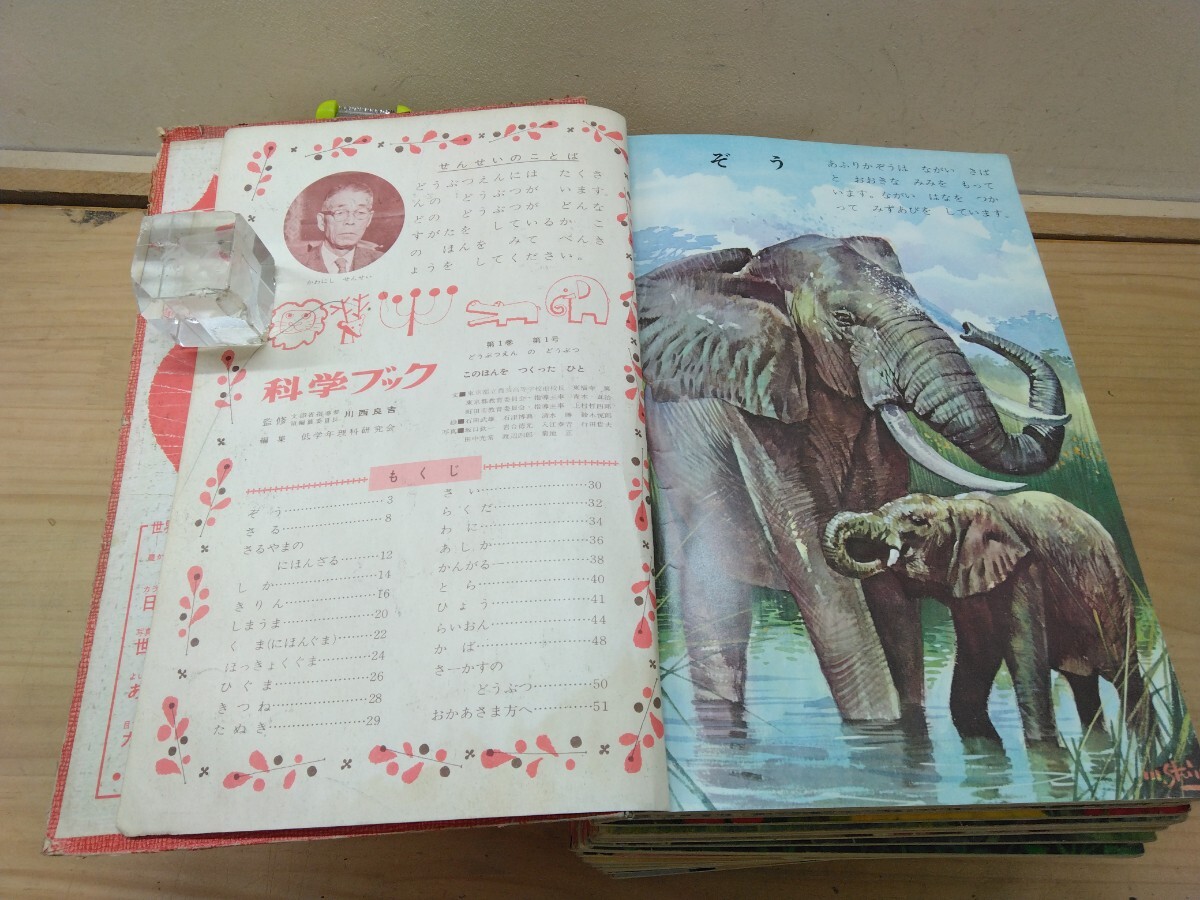 せんせいのことば
どうぶつえんには たくさ
んの どうぶつが います。
どの どうぶつが どんな
すがたを しているか こ
の ほんを みて べんき
ょうを してください。
かわにし せんせい
第1巻 第1号
どうぶつえん の どうぶつ
科学ブック
このほんを つくった ひと
監修
川西良吉
編集 低学年理科研究会
もくじ
ぞう 3
さる 8
さるやまの
にほんざる 12
しか 14
きりん 16
しまうま 20
くま(にほんぐま) 22
ほっきょくぐま 24
ひぐま 26
きつね 28
たぬき 29
さい 30
らくだ 32
わに 34
あしか 36
かんがるー 38
とら 40
ひょう 41
らいおん 44
かば 48
さーかすの
どうぶつ 50
おかあさま方へ 51
ぞう
あふりかぞうは ながい きば
と おおきな みみを もって
います。ながい はなを つか
って みずあびを しています。